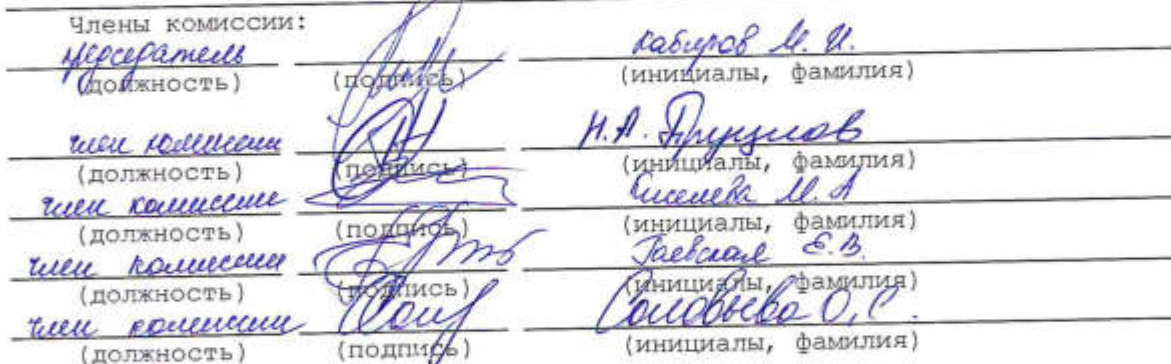 Члены комиссии:
председатель Кабиров М. И.
(должность) (подпись) (инициалы, фамилия)
член комиссии Н.А.
(должность) (подпись) (инициалы, фамилия)
член комиссии Киселева М. А
(должность) (подпись) (инициалы, фамилия)
член комиссии Гаевская Е.В.
(должность) (подпись) (инициалы, фамилия)
член комиссии Соловьева О.С.
(должность) (подпись) (инициалы, фамилия)